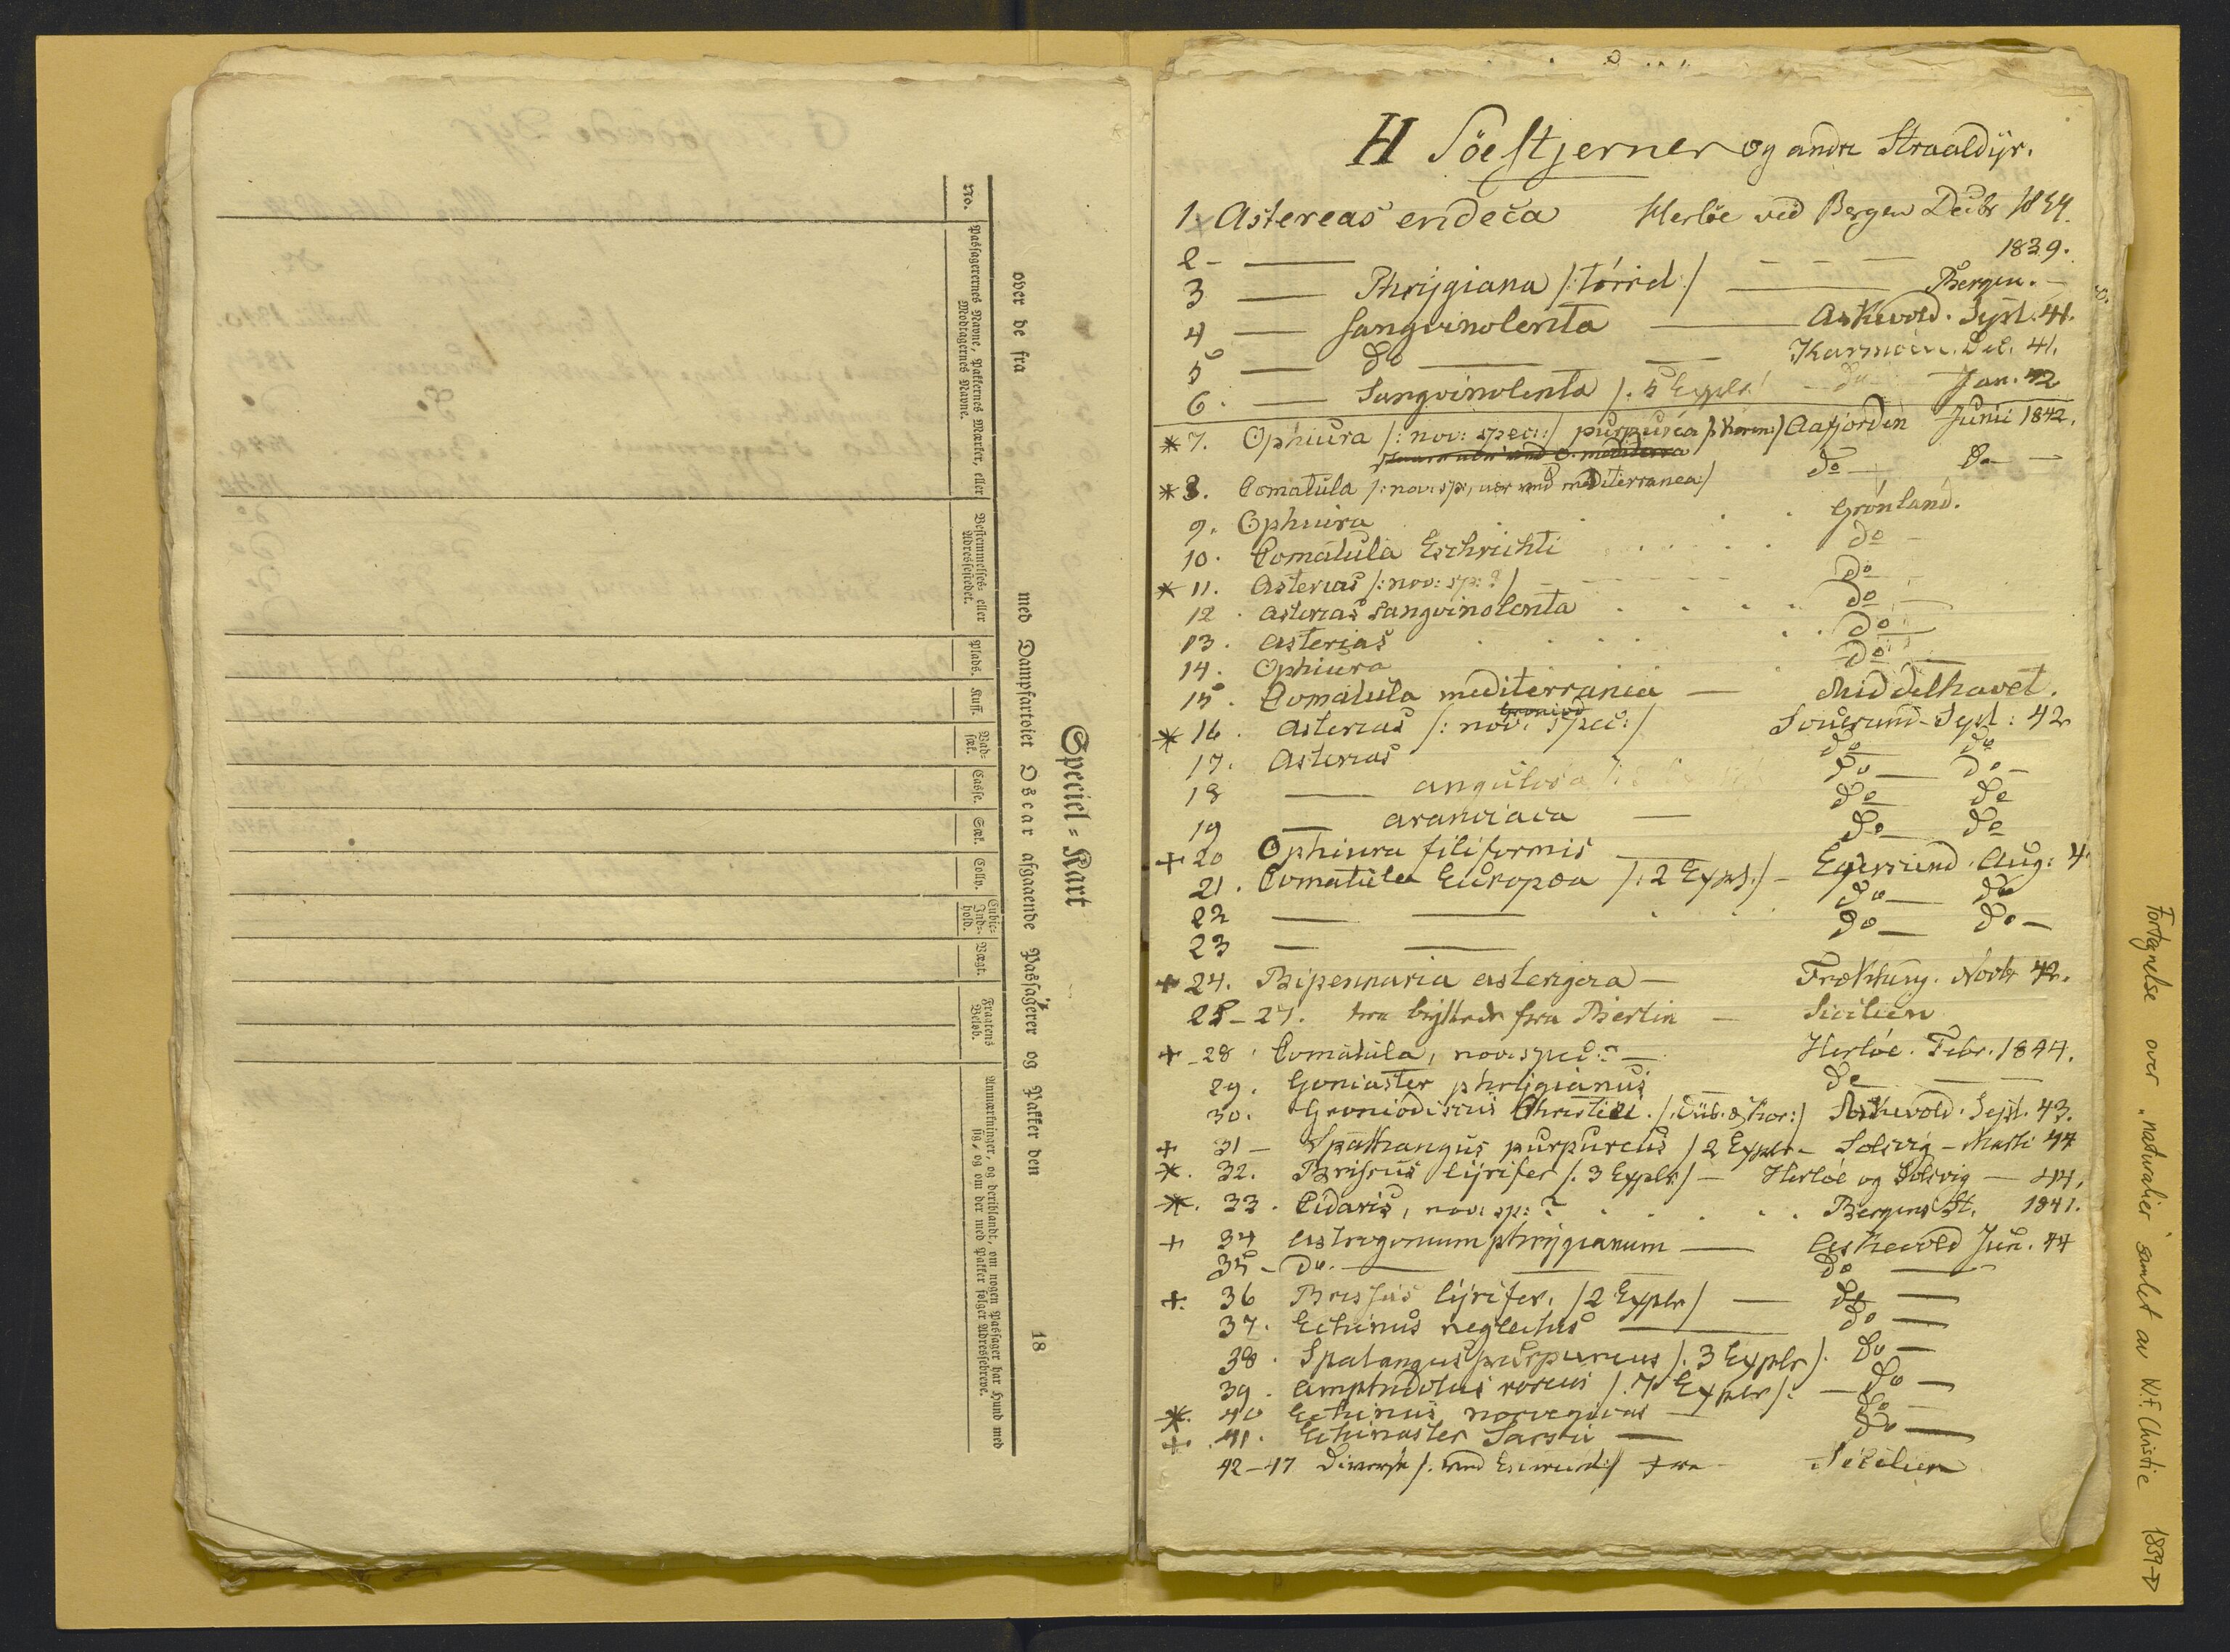 Speciel-Kart
over de fra med Dampfartoiet Oscar afgaaende Passagerer og Pakker den 18
No.
Passagerernes Navne, Pakkernes Mærker, eller Modtagernes Navne.
Bestemmelses- eller Adressestedet.
Plads.
Kuff.
Vadsæk.
Casse.
Sæk.
Colly.
Cubic-Indhold.
Vægt.
Fragtens Beløb.
Anmærkninger, og deriblandt, om nogen Passager har Hund med sig, og om der med Pakker følger Adressebreve.
H Söestjerner og andre Straaldyr.
1. Astereas endeca Herlöe ved Bergen Decbr
2 - — 1839.
3 — Phrygiana /:törred:/ — Bergen.
4 — Sangvinolenta — Askevold. Sept. 41.
5 — do — Karmöen. Dec. 41.
6. — Sangvinolenta /. 5 Explr do Jan. 42
* 7. Ophiura /: nov: spec:/ purpurea /:Koren:/ Aafjorden Junii 1842.
* 8. Comatula /: nov: sp, nær ved mediterranea:/ do — do —
9. Ophiura Grönland.
10. Comatula Eschrichti do -
* 11. Asterias /:nov: sp:?/ do
12. Asterias Sangvinolenta do
13. Asterias do
14. Ophiura do
15. Comatula mediterrania — Middelhavet.
* 16. Asterias /: nov: Spec:/ Sept: 42
17. Asterias do do
18 — angulosa do — do -
19 — aranciaca — do do
+ 20 Ophiura filiformis do do
21. Comatula Europæa /: 2 Expl:/ - Egersund. Aug: 4
22 — — do — do
23 — — do — do -
+ 24. Bipennaria asterigera — Novbr 42.
25-27. tre byttede fra Berlin — Sicilien
+ 28. Comatula, nov: spec:? — Herlöe. Febr. 1844.
29. Goniaster phrygianus do —
30. Goniodiscus Christii /.Düb. & Kor:/ Askevold. Sept. 43.
+ 31 - Spathangus purpureus /2 Explr - Solsvig - Martii 44
*. 32. Brissus lyrifer /. 3 Explr/ — Herlöe og Solsvig — 44.
*. 33. Cidaris, nov: sp:? Bergens St. 1841.
+ 34 Astrogonum phrygianum — Askevold Jun. 44
35 - Do. — do —
+. 36 Brissus lyrifer. /2 Explr/ — do —
37. Echinus neglectus — do —
38. Spatangus purpureus /. 3 Explr/. do —
39. Amphidotus roseus /. 7 Explr/. — do —
*. 40 Echinus norvegicus — do —
+ .41. Echinaster Sarsii — do —
42-47 Diverse fra Sicilien
Fortegnelse over "naturalier" samlet av W.F. Christie 1839→